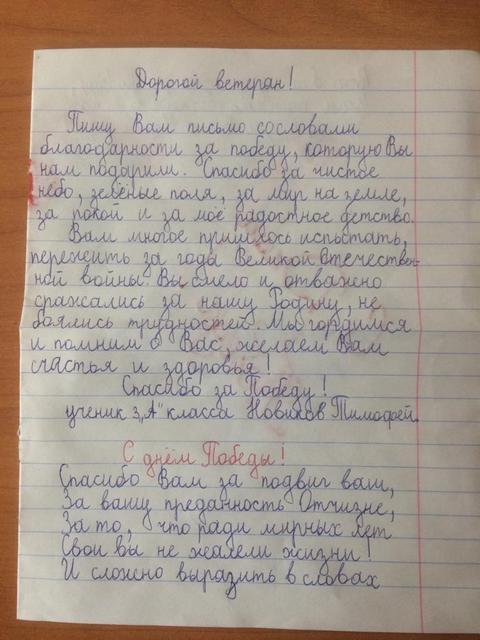 Дорогой ветеран!
Пишу Вам письмо сословами
благодарности за победу, которую Вы
нам подарили. Спасибо за чистое
небо, зелёные поля, за мир на земле,
за покой и за моё радостное детство.
Вам многое пришлось испытать,
пережить за годы Великой Отечествен-
ной войны. Вы смело и отважно
сражались за нашу Родину, не
боялись трудностей. Мы гордимся
и помним о Вас, желаем Вам
счастья и здоровья!
Спасибо за Победу!
ученик 3„А" класса Новиков Тимофей.
С днём Победы!
Спасибо Вам за подвиг ваш,
За вашу преданность Отчизне,
За то, что ради мирных лет
Свои вы не жалели жизни!
И сложно выразить в словах